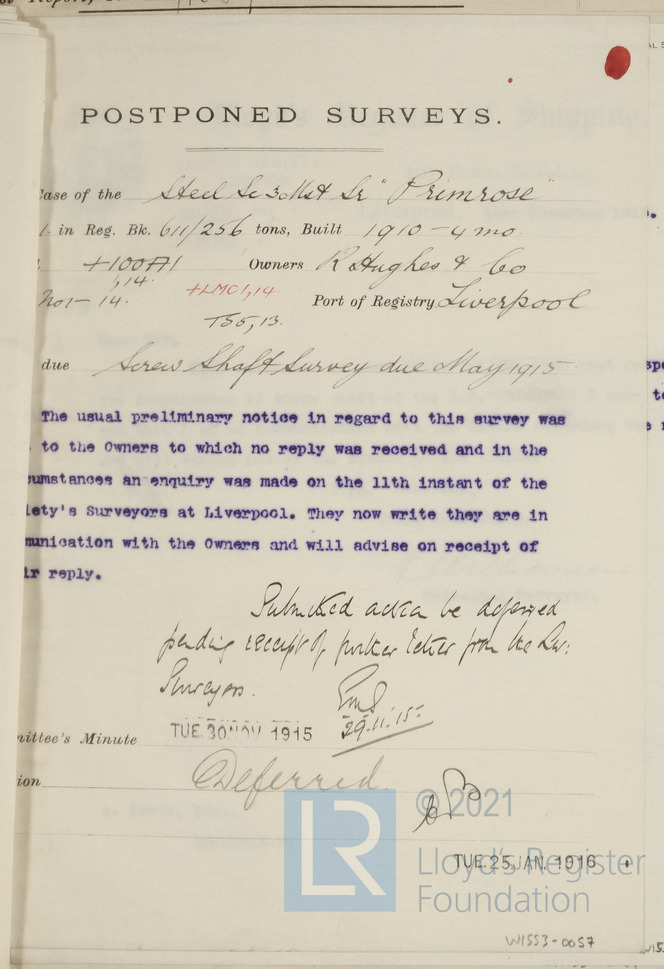 POSTPONED SURVEYS.
ase of the Steel Sc 3Mst Sr "Primrose"
in Reg. Bk. 611/256 tons, Built 1910-4mo
+100A1 Owners R Hughes & Co
1,14
No1-14. +LMC1,14. Port of Registry Liverpool
TS5,13.
due Screw Shaft Survey due May 1915
The usual preliminary notice in regard to this survey was
to the Owners to which no reply was received and in the
umstances an enquiry was made on the 11th instant of the
iety's Surveyors at Liverpool. They now write they are in
munication with the Owners and will advise on receipt of
ir reply.
Submitted action be deferred
pending receipt of further letter from the Liv:
Surveyors.
29.11.15
mittee's Minute TUE. 30 NOV 1915
ion Deferred
© 2021
LR
Lloyd's Register
Foundation
TUE. 25 JAN. 1916
W1553-0057